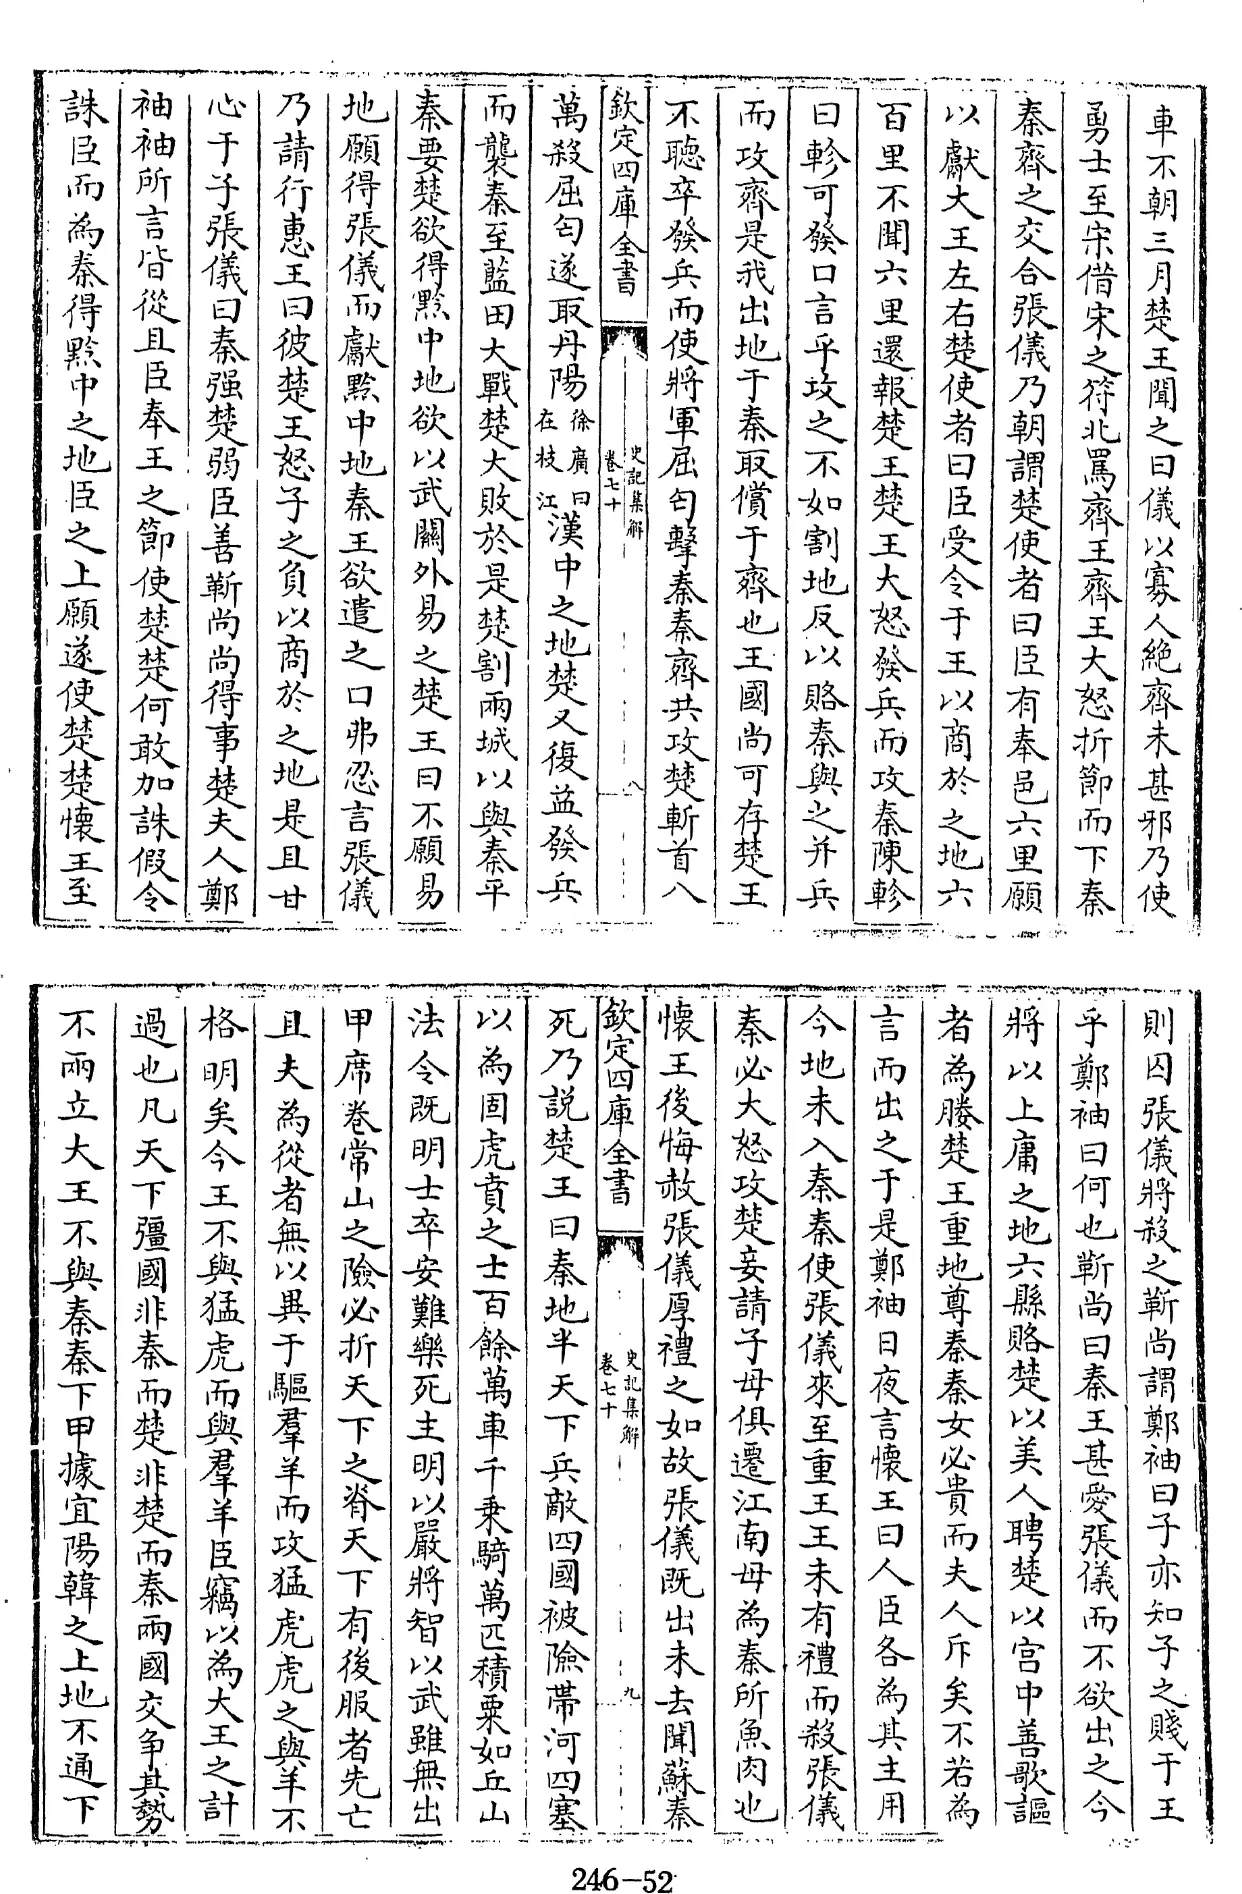 車不朝三月楚王聞之曰儀以寡人絶齊未甚邪乃使
勇士至宋借宋之符北罵齊王齊王大怒折節而下秦
秦齊之交合張儀乃朝謂楚使者曰臣有奉邑六里願
以獻大王左右楚使者曰臣受令于王以商於之地六
百里不聞六里還報楚王楚王大怒發兵而攻秦陳軫
曰軫可發口言乎攻之不如割地反以賂秦與之并兵
而攻齊是我出地于秦取償于齊也王國尚可存楚王
不聽卒發兵而使將軍屈匄擊秦秦齊共攻楚斬首八
欽定四庫全書
史記集解
卷七十
八
萬殺屈匄遂取丹陽徐廣曰在枝江漢中之地楚又復益發兵
而襲秦至藍田大戰楚大敗於是楚割兩城以與秦平
秦要楚欲得黔中地欲以武關外易之楚王曰不願易
地願得張儀而獻黔中地秦王欲遣之口弗忍言張儀
乃請行惠王曰彼楚王怒子之負以商於之地是且甘
心于子張儀曰秦强楚弱臣善靳尚尚得事楚夫人鄭
袖袖所言皆從且臣奉王之節使楚楚何敢加誅假令
誅臣而為秦得黔中之地臣之上願遂使楚楚懷王至
則囚張儀將殺之靳尚謂鄭袖曰子亦知子之賤于王
乎鄭袖曰何也靳尚曰秦王甚愛張儀而不欲出之今
將以上庸之地六縣賂楚以美人聘楚以宫中善歌謳
者為媵楚王重地尊秦秦女必貴而夫人斥矣不若為
言而出之于是鄭袖日夜言懷王曰人臣各為其主用
今地未入秦秦使張儀來至重王王未有禮而殺張儀
秦必大怒攻楚妾請子母俱遷江南毋為秦所魚肉也
懷王後悔赦張儀厚禮之如故張儀既出未去聞蘇秦
欽定四庫全書
史記集解
卷七十
九
死乃説楚王曰秦地半天下兵敵四國被險帶河四塞
以為固虎賁之士百餘萬車千乗騎萬匹積粟如丘山
法令既明士卒安難樂死主明以嚴將智以武雖無出
甲席卷常山之險必折天下之脊天下有後服者先亡
且夫為從者無以異于驅羣羊而攻猛虎虎之與羊不
格明矣今王不與猛虎而與羣羊臣竊以為大王之計
過也凡天下彊國非秦而楚非楚而秦兩國交争其勢
不兩立大王不與秦秦下甲據宜陽韓之上地不通下
246-52